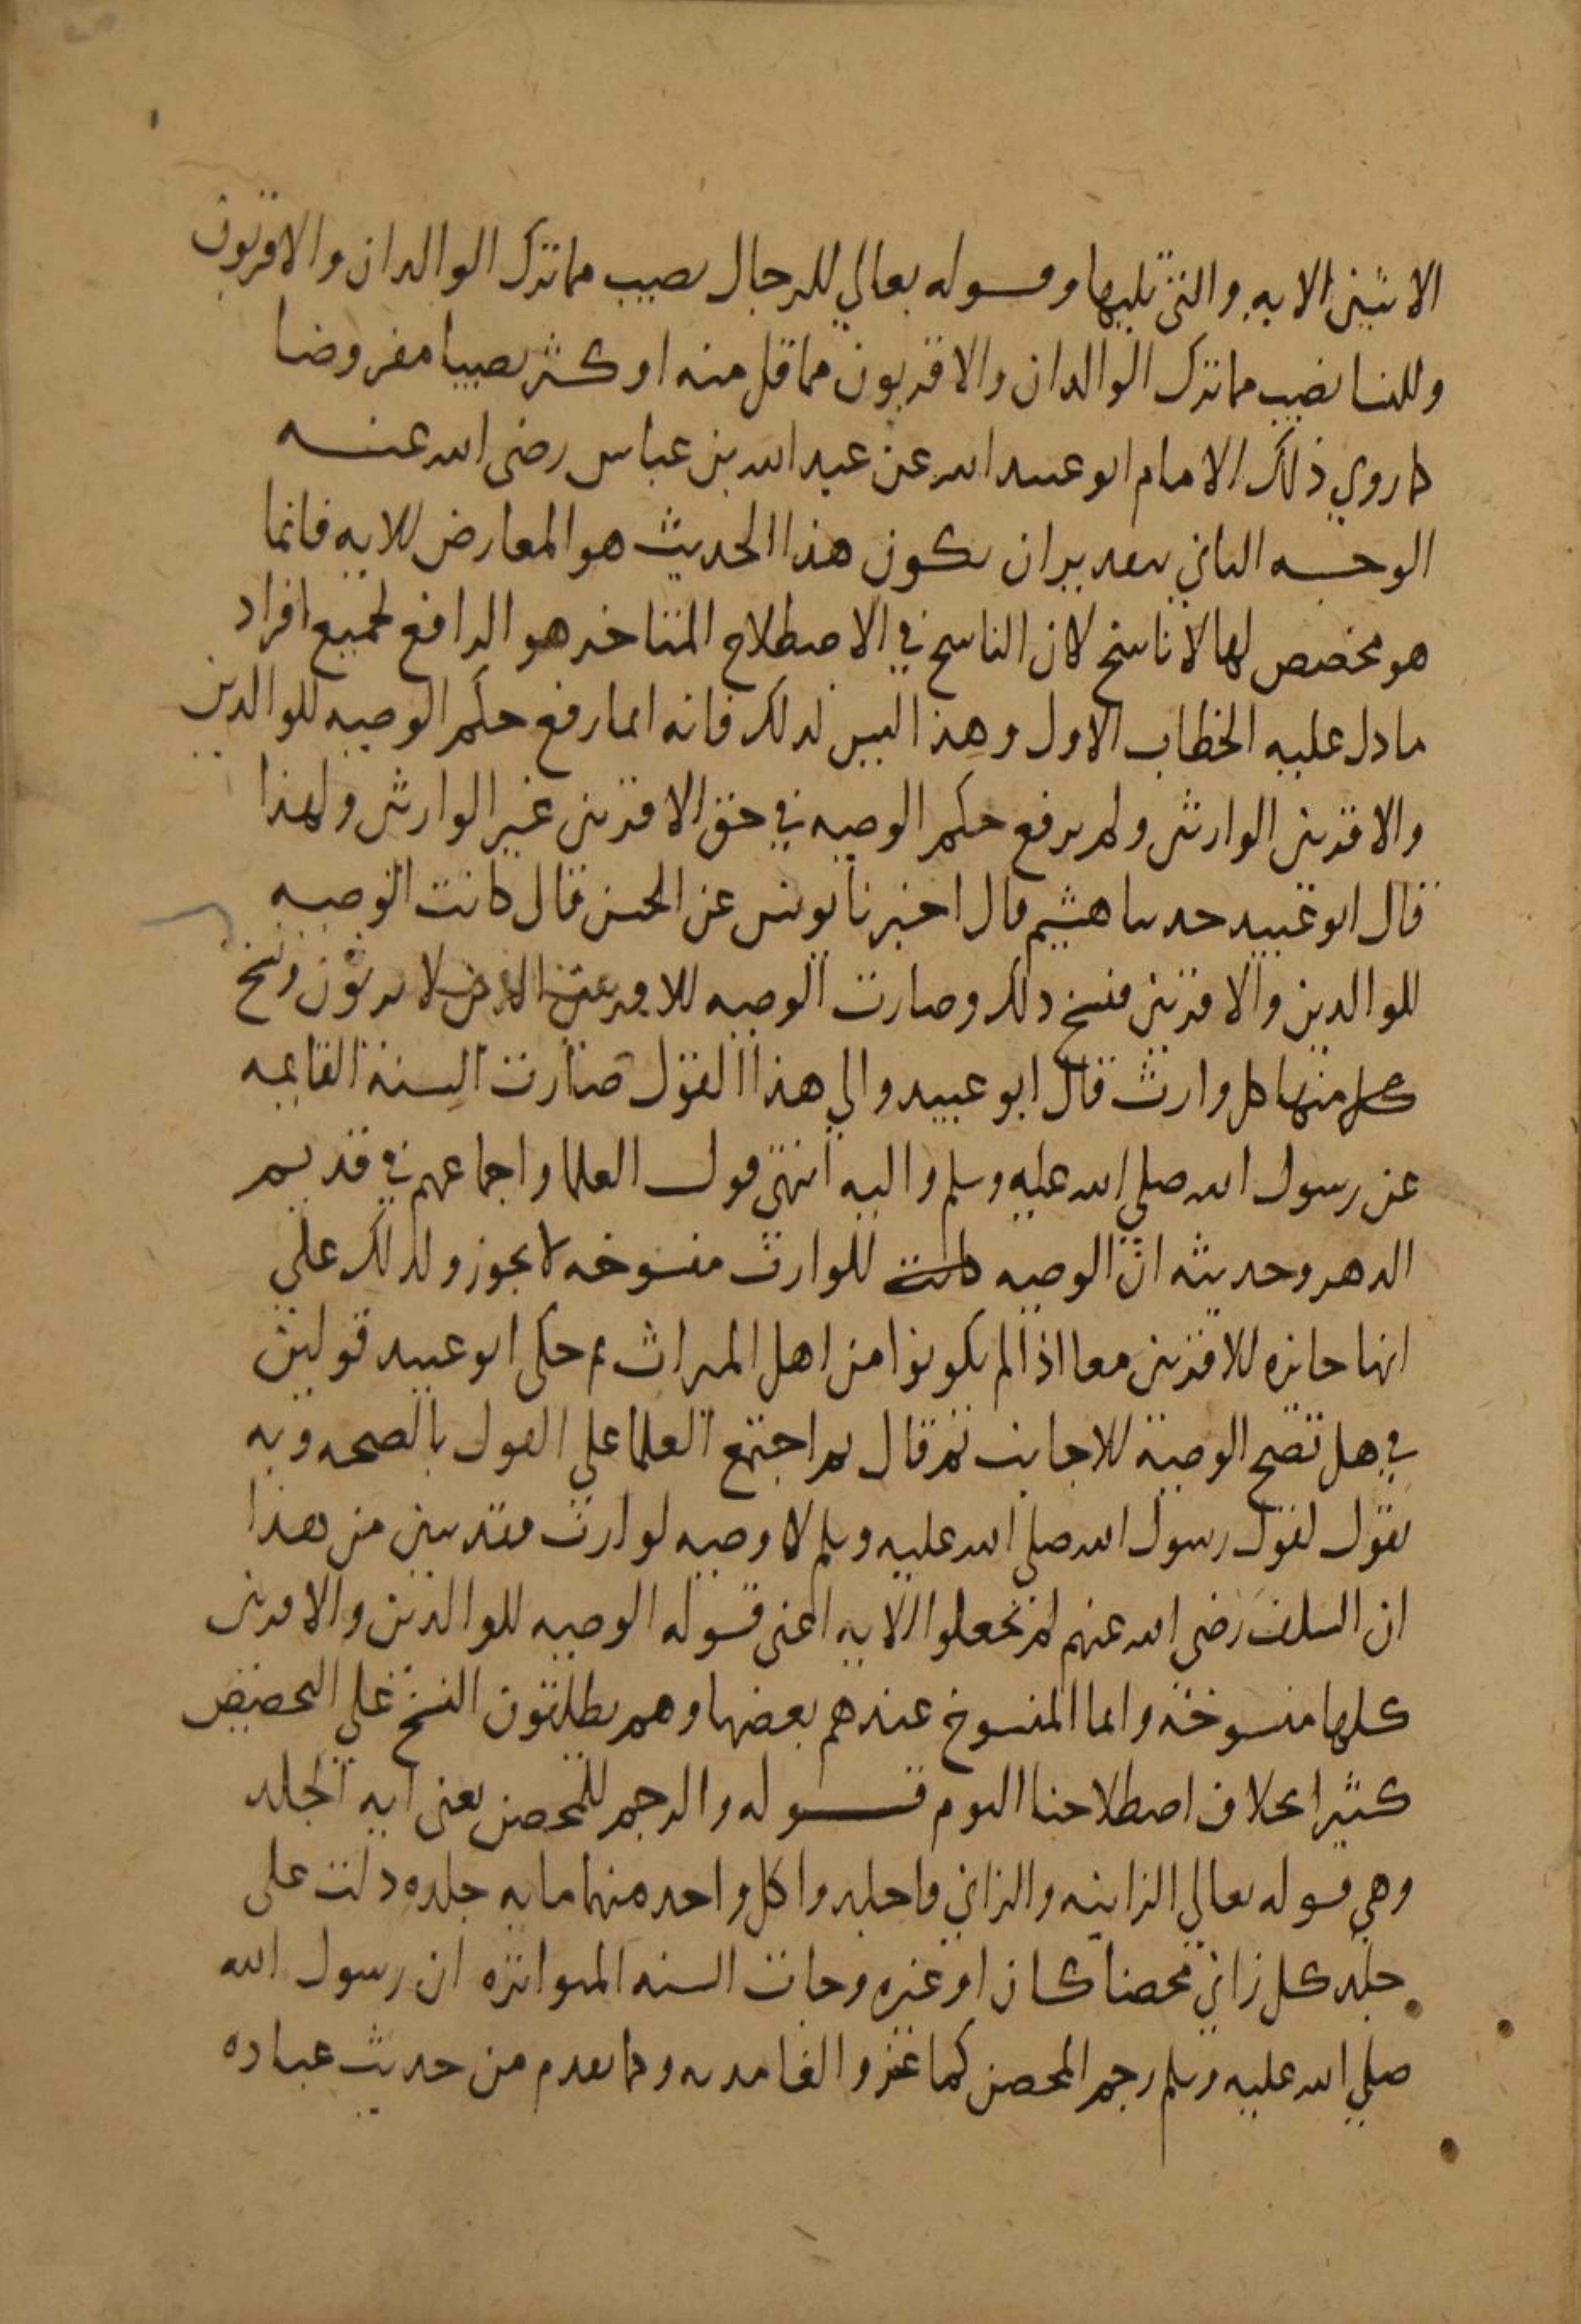 الانثيين الايه والتي تليها وقوله تعالي للرجال نصيب مما ترك الوالدان والاقربون
وللنسا نصيب مما ترك الوالدان والاقربون مما قل منه او كثر نصيبا مفروضا
كما روي ذلك الامام ابو عبيد الله عن عبد الله بن عباس رضى الله عنه
الوجه الثاني بتقدير ان يكون هذا الحديث هو المعارض للايه فانما
هو مخصص لها لا ناسخ لان الناسخ في الاصطلاح المتاخر هو الرافع لجميع افراد
ما دل عليه الخطاب الاول وهذا ليس كذلك فانه انما رفع حكم الوصيه للوالدين
والاقربين الوارثين ولم يرفع حكم الوصيه في حق الاقربين غير الوارثين ولهذا
قال ابو عبيد حدثنا هشيم قال اخبرنا يونس عن الحسن قال كانت الوصيه
للوالدين والاقربين فنسخ ذلك وصارت الوصيه للاقربين الذين لا يرثون ونسخ
منها كل وارث قال ابو عبيد والي هذا القول صارت السنة القايمه
عن رسول الله صلي الله عليه وسلم واليه انتهى قول العلما واجماعهم في قديم
الدهر وحديثه ان الوصيه للوارث منسوخه لا يجوز وكذلك علي
انها جايزه للاقربين معا اذا لم يكونوا من اهل الميراث ثم حكى ابو عبيد قولين
في هل تصح الوصية للاجانب ثم قال ثم اجتمع العلما على القول بالصحه وبه
نقول لقول رسول الله صلى الله عليه وسلم لا وصيه لوارث فتدبين من هذا
ان السلف رضى الله عنهم لم يجعلوا الايه اعنى قوله الوصيه للوالدين والاقربين
كلها منسوخة وانما المنسوخ عندهم بعضها وهم يطلقون النسخ على التخصيص
كثيرا بخلاف اصطلاحنا اليوم قوله والرجم للمحصن يعنى ايه الجلد
وهي قوله تعالي الزانيه والزاني فاجلدوا كل واحد منهما مايه جلده دلت على
جلد كل زاني محصنا كان او غيره وجات السنه المتواتره ان رسول الله
صلي الله عليه وسلم رجم المحصن كماعز والغامديه وكما تقدم من حديث عباده